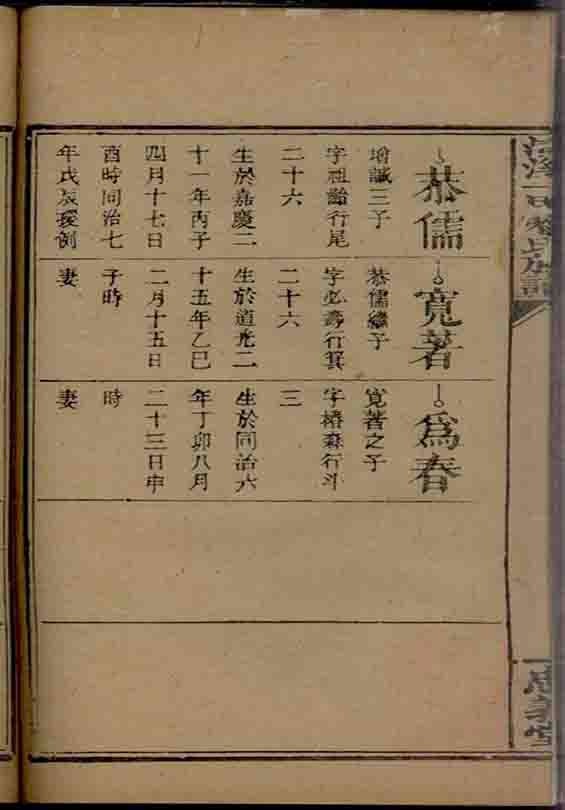 恭儒
增誠三子
字祖齡行尾
二十六
生於嘉慶二
十一年丙子
四月十七日
酉時同治七
年戊辰援例
寬著
恭儒繼子
字必壽行箕
二十六
生於道光二
十五年乙巳
二月十五日
子時
妻
為春
寬著之子
字椿森行斗
三
生於同治六
年丁卯八月
二十三日申
時
妻
氏族譜
堂